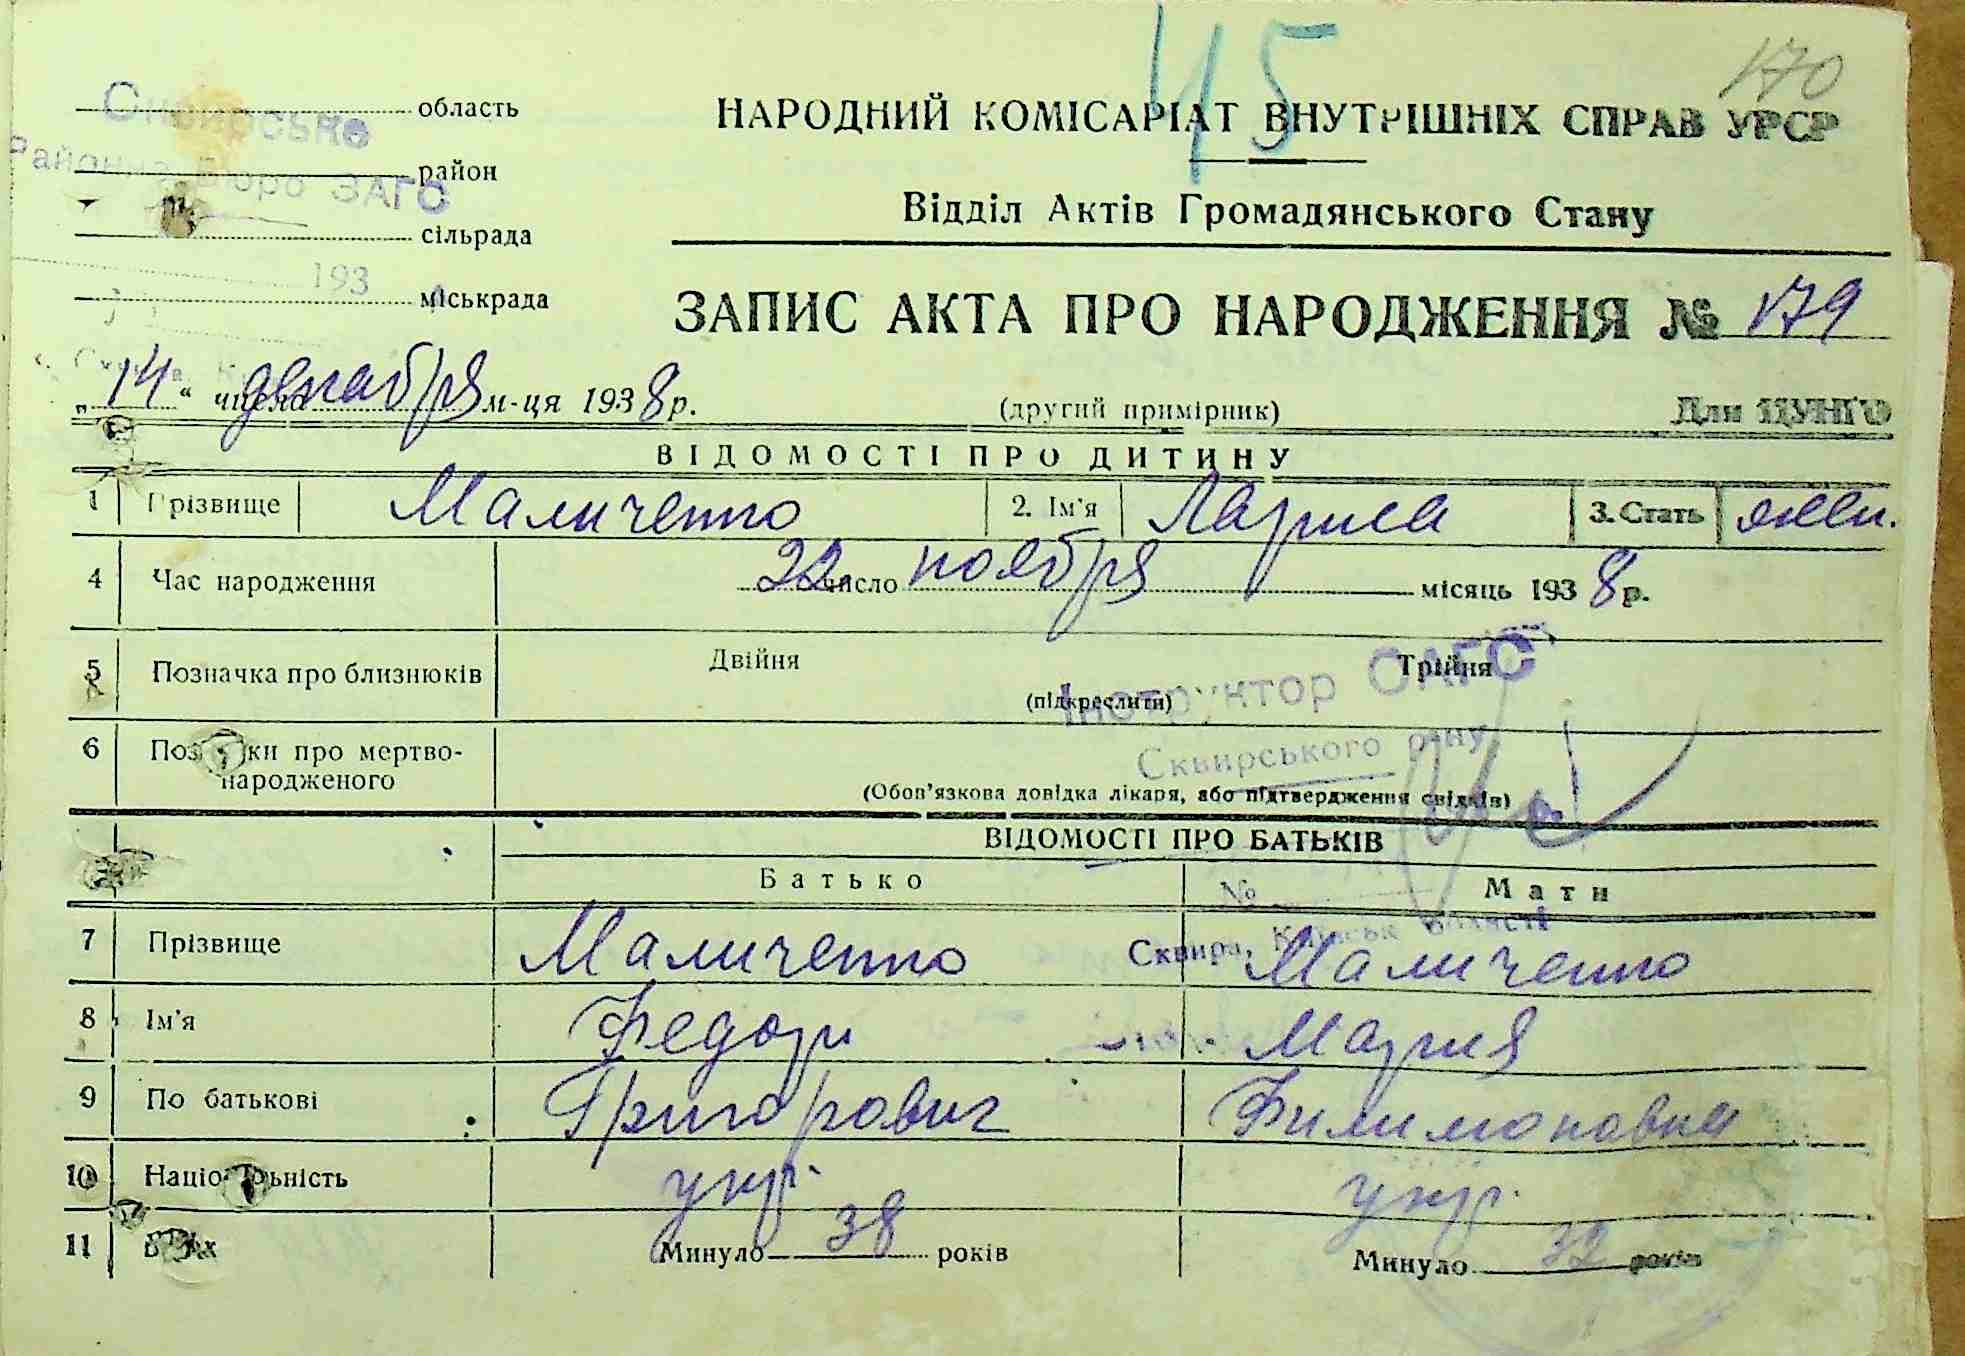 45
170
область
НАРОДНИЙ КОМІСАРІАТ ВНУТРІШНІХ СПРАВ УРСР
Сквирське
район
Районне Бюро ЗАГС
Відділ Актів Громадянського Стану
сільрада
193
міськрада
ЗАПИС АКТА ПРО НАРОДЖЕННЯ № 179
„14“ числа декабря м-ця 1938 р.
(другий примірник)
Для ЦУНГО
ВІДОМОСТІ ПРО ДИТИНУ
1 Прізвище Маличенко 2. Ім'я Лариса 3. Стать жен.
4 Час народження 22 число ноября місяць 1938 р.
5 Позначка про близнюків Двійня Трійня
(підкреслити)
Інструктор ОАГС
Сквирського р-ну
6 Позначки про мертвонародженого
(Обов'язкова довідка лікаря, або підтвердження свідків)
ВІДОМОСТІ ПРО БАТЬКІВ
Батько Мати
№
Сквира, Київськ області
7 Прізвище Маличенко Маличенко
8 Ім'я Федор Мария
9 По батькові Григорович Филимоновна
10 Національність укр. укр.
11 Минуло 38 років Минуло 32 років